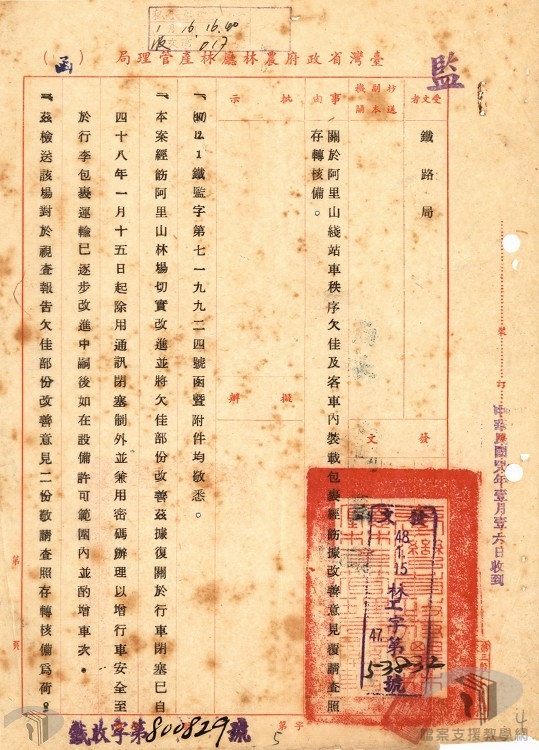 臺灣省政府農林廳林產管理局（函）
監
受文者
鐵路局
抄送副本機關
事由
關於阿里山綫站車秩序欠佳及客車內裝載包裹經飭據改善意見覆請查照
存轉核備。
批示
擬辦
發文
發文
48.1.15
林工字第
47.
53832
號
一、(47)12.1鐵監字第七一九九二四號函暨附件均敬悉。
二、本案經飭阿里山林場切實改進並將欠佳部份改善茲據復關於行車閉塞已自
四十八年一月十五日起除用通訊閉塞制外並兼用密碼辦理以增行車安全至
於行李包裹運輸已逐步改進中嗣後如在設備許可範圍內並酌增車次。
三、茲檢送該場對於視查報告欠佳部份改善意見二份敬請查照存轉核備爲荷。
裝
訂
中華民國48年壹月壹六日收到
鐵收字第800829號
第
字第
5
4
檔案支援教學網